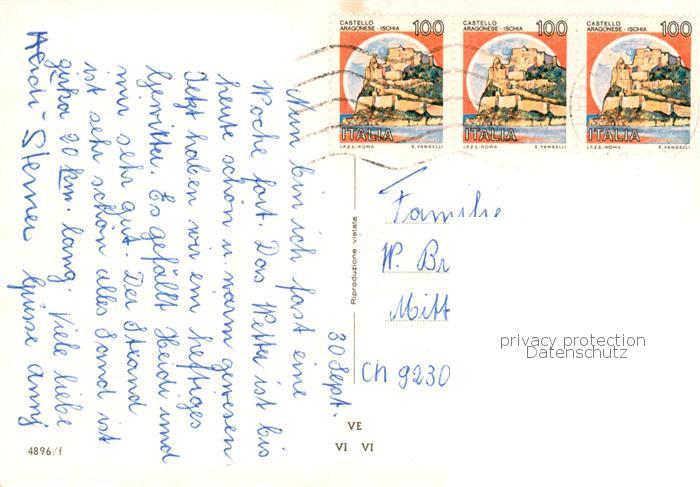 CASTELLO
ARAGONESE - ISCHIA 100
ITALIA
I.P.Z.S. - ROMA E. VANGELLI
CASTELLO
ARAGONESE - ISCHIA 100
ITALIA
I.P.Z.S. - ROMA E. VANGELLI
CASTELLO
ARAGONESE - ISCHIA 100
ITALIA
I.P.Z.S. - ROMA E. VANGELLI
30 Sept.
Nun bin ich fast eine
Woche fort. Das Wetter ist bis
heute schön u. warm gewesen.
Jetzt haben wir ein heftiges
Gewitter. Es gefällt Heidi und
mir sehr gut. Der Strand
ist sehr schön alles Sand ist
zirka 20 km. lang. Viele liebe
Grüsse Anny
Heidi - Sterner
Riproduzione vietata
Familie
W. Br
Mitt
CH 9230
privacy protection
Datenschutz
VE
VI VI
4896/f